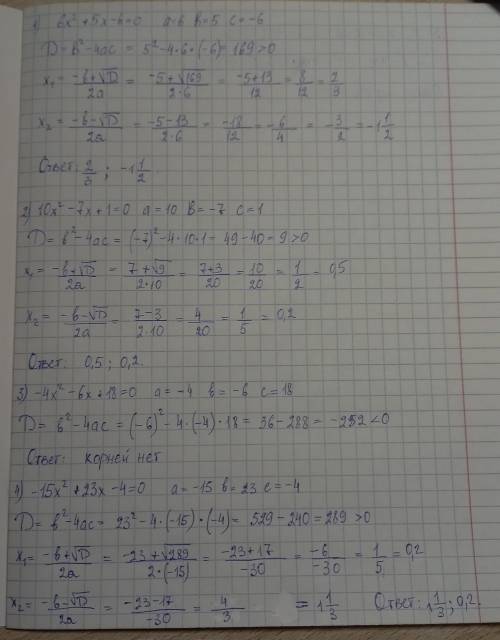 1) 6x² + 5x - 6 = 0 a=6 b=5 c=-6
D = b² - 4ac = 5² - 4·6·(-6) = 169 > 0
x₁ = (-b+√D)/(2a) = (-5+√169)/(2·6) = (-5+13)/12 = 8/12 = 2/3
x₂ = (-b-√D)/(2a) = (-5-13)/(2·6) = -18/12 = -6/4 = -3/2 = -1 1/2
Ответ: 2/3 ; -1 1/2.
2) 10x² - 7x + 1 = 0 a = 10 b = -7 c = 1
D = b² - 4ac = (-7)² - 4·10·1 = 49 - 40 = 9 > 0
x₁ = (-b+√D)/(2a) = (7+√9)/(2·10) = (7+3)/20 = 10/20 = 1/2 = 0,5
x₂ = (-b-√D)/(2a) = (7-3)/(2·10) = 4/20 = 1/5 = 0,2
Ответ: 0,5 ; 0,2.
3) -4x² - 6x + 18 = 0 a = -4 b = -6 c = 18
D = b² - 4ac = (-6)² - 4·(-4)·18 = 36 - 288 = -252 < 0
Ответ: корней нет
4) -15x² + 23x - 4 = 0 a = -15 b = 23 c = -4
D = b² - 4ac = 23² - 4·(-15)·(-4) = 529 - 240 = 289 > 0
x₁ = (-b+√D)/(2a) = (-23+√289)/(2·(-15)) = (-23+17)/(-30) = -6/-30 = 1/5 = 0,2
x₂ = (-b-√D)/(2a) = (-23-17)/(-30) = 4/3 = 1 1/3 Ответ: 1 1/3 ; 0,2.